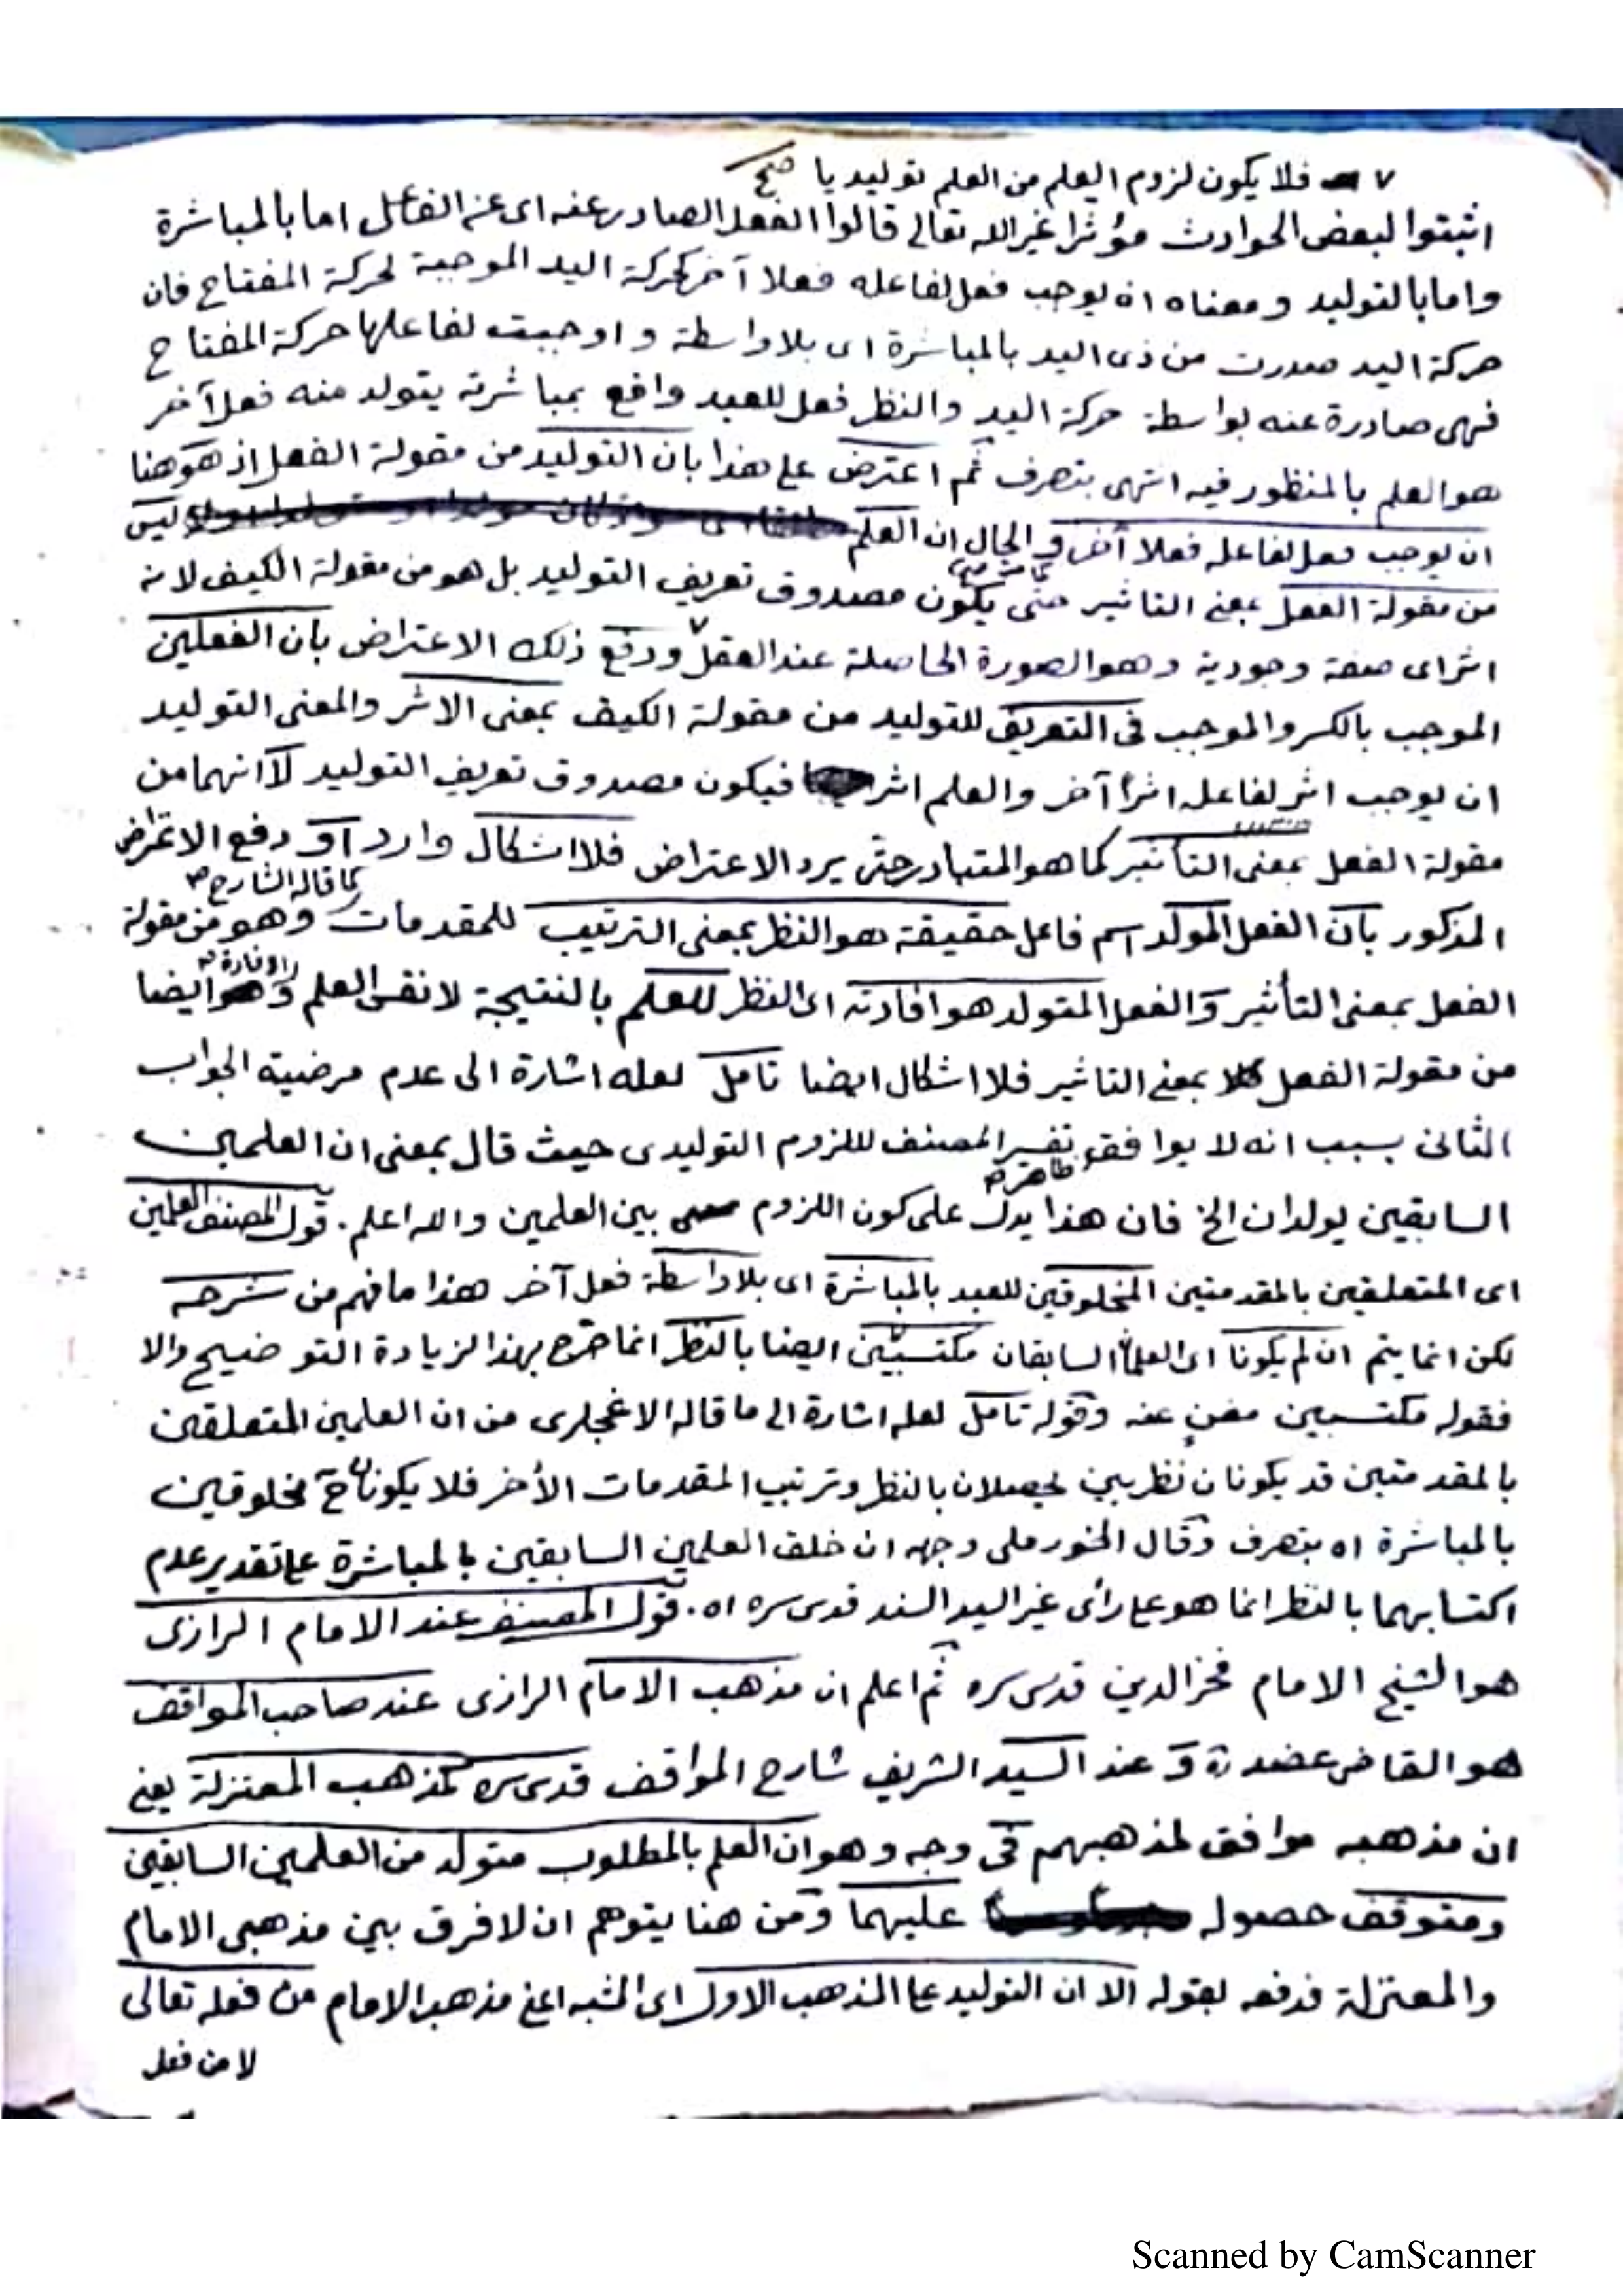 ٧ فلا يكون لزوم العلم من العلم توليديا صح
اثبتوا لبعض الحوادث مؤثرا غير الله تعالى قالوا الفعل الصادر عنه اى عن الفاعل اما بالمباشرة
واما بالتوليد ومعناه ان يوجب فعل لفاعله فعلا آخر كحركة اليد الموجبة لحركة المفتاح فان
حركة اليد صدرت من ذى اليد بالمباشرة اى بلا واسطة و اوجبت لفاعلها حركة المفتاح
فهى صادرة عنه بواسطة حركة اليد والنظر فعل للعبد واقع بمباشرته يتولد منه فعل آخر
هو العلم بالمنظور فيه انتهى بتصرف ثم اعترض على هذا بان التوليد من مقولة الفعل اذ هو هنا
ان يوجب فعل لفاعله فعلا آخر و الحال ان العلم ليس
من مقولة الفعل بمعنى التاثير حتى يكون مصدوق تعريف التوليد بل هو من مقولة الكيف لانه
اثر اى صفة وجودية وهو الصورة الحاصلة عند العقل ٧ ودفع ذلك الاعتراض بان الفعلين
الموجب بالكسر والموجب فى التعريف للتوليد من مقولة الكيف بمعنى الاثر والمعنى التوليد
ان يوجب اثر لفاعله اثرا آخر والعلم اثر فيكون مصدوق تعريف التوليد لا انهما من
مقولة الفعل بمعنى التأثير كما هو المتبادر حتى يرد الاعتراض فلا اشكال وارد او دفع الاعتراض
كما قاله الشارح
المذكور بان الفعل المولد اسم فاعل حقيقة هو النظر بمعنى الترتيب للمقدمات وهو من مقولة
الفعل بمعنى التأثير والفعل المتولد هو افادته اى النظر للعلم بالنتيجة لا نفس العلم و ايضا
من مقولة الفعل بمعنى التاثير فلا اشكال ايضا تامل لعله اشارة الى عدم مرضية الجواب
الثانى بسبب انه لا يوافق تفسير المصنف لللزوم التوليدى حيث قال بمعنى ان العلمين
ظاهره
السابقين يولدان الخ فان هذا يدل على كون اللزوم بين العلمين والله اعلم . قول المصنف العلمين
اى المتعلقين بالمقدمتين المخلوقين للعبد بالمباشرة اى بلا واسطة فعل آخر هذا ما فهم من شرحه
لكن انما يتم ان لم يكونا اى العلمان السابقان مكتسبين ايضا بالنظر انما صرح بهذا لزيادة التوضيح والا
فقوله مكتسبين مغن عنه وقوله تامل لعله اشارة الى ما قاله الاغجلرى من ان العلمين المتعلقين
بالمقدمتين قد يكونان نظريين يحصلان بالنظر وترتيب المقدمات الأخر فلا يكونان ح مخلوقين
بالمباشرة اه بتصرف وقال الخنورملى وجهه ان خلق العلمين السابقين بالمباشرة على تقدير عدم
اكتسابهما بالنظر انما هو على رأى غير السيد السند قدس سره اه . قول المصنف عند الامام الرازى
هو الشيخ الامام فخر الدين قدس سره ثم اعلم ان مذهب الامام الرازى عند صاحب المواقف
هو القاضى عضد و عند السيد الشريف شارح المواقف قدس سره كمذهب المعتزلة يعنى
ان مذهبه موافق لمذهبهم فى وجه وهو ان العلم بالمطلوب متولد من العلمين السابقين
ومتوقف حصوله عليهما ومن هنا يتوهم ان لا فرق بين مذهبى الامام
والمعتزلة فدفعه بقوله الا ان التوليد على المذهب الاول اى المشبه اعنى مذهب الامام من فعله تعالى
لا من فعل
Scanned by CamScanner